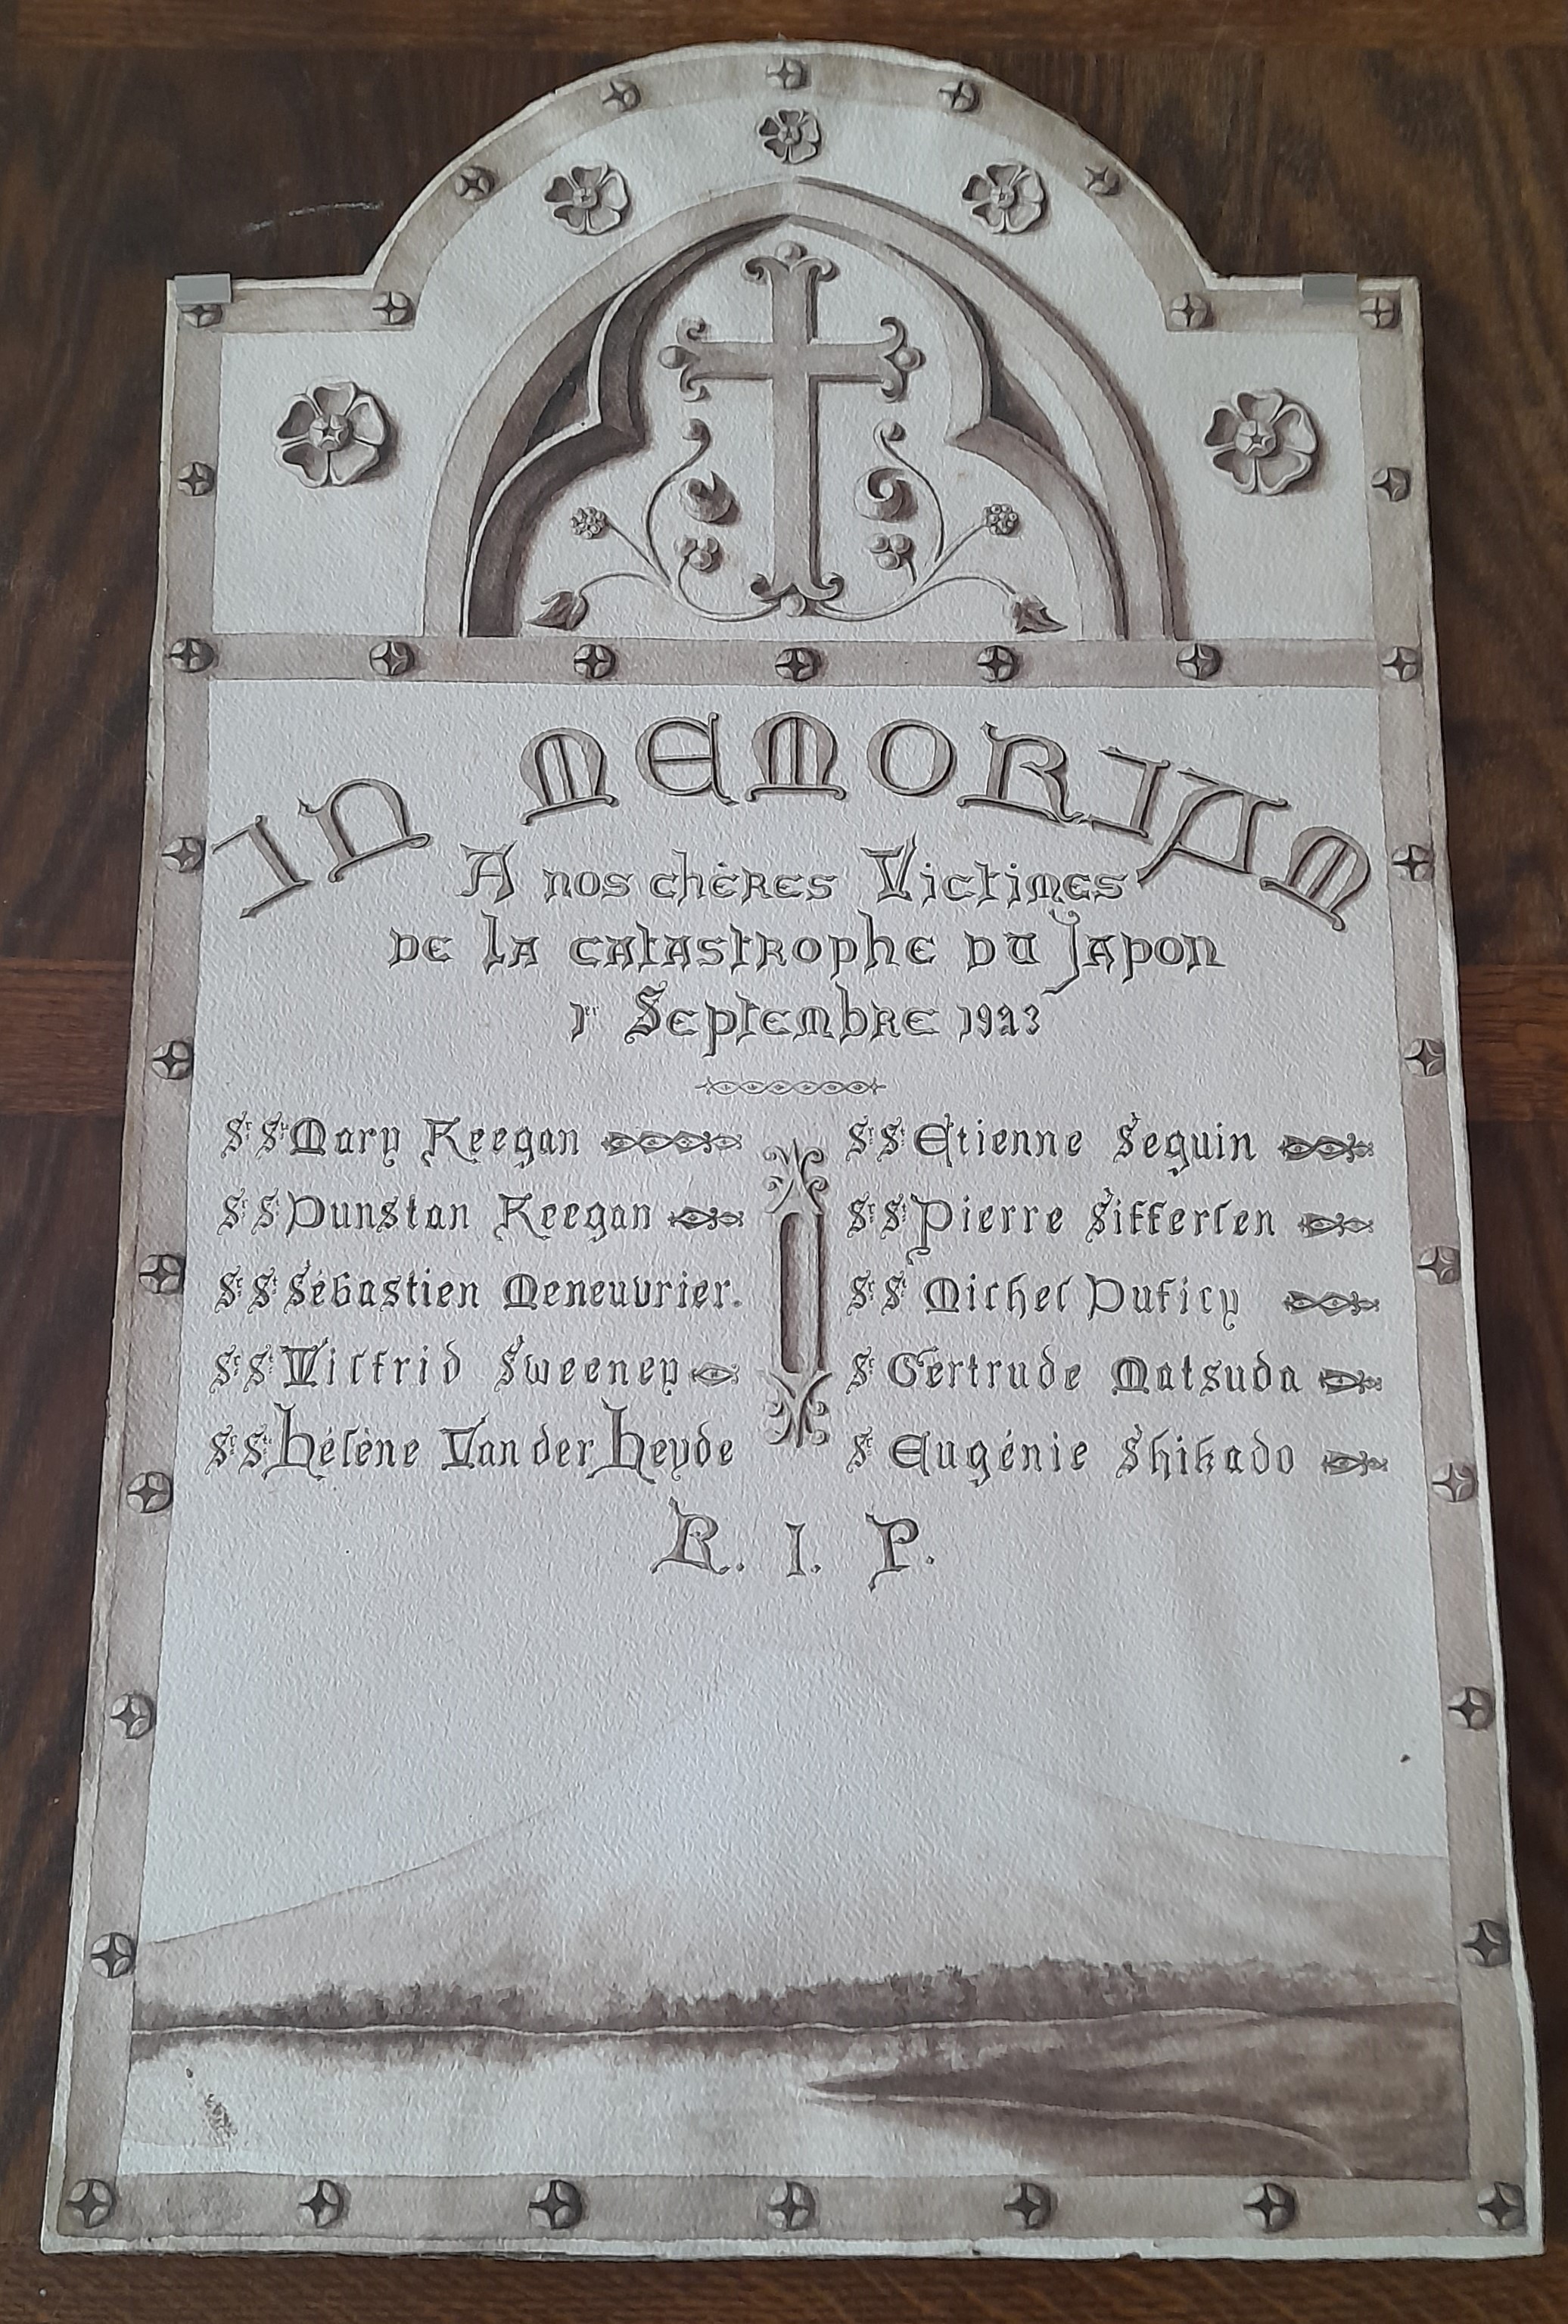 IN MEMORIUM
A nos chères Victimes
de la catastrophe du Japon
1er Septembre 1923
Sr St Mary Keegan
Sr St Dunstan Keegan
Sr St Sébastien Meneuvrier.
Sr St Wilfrid Sweeney
Sr Ste Hélène Van der Heyde
Sr St Etienne Seguin
Sr St Pierre Sifferlen
Sr St Michel Duficy
Sr Gertrude Matsuda
Sr Eugénie Shikado
R. I. P.